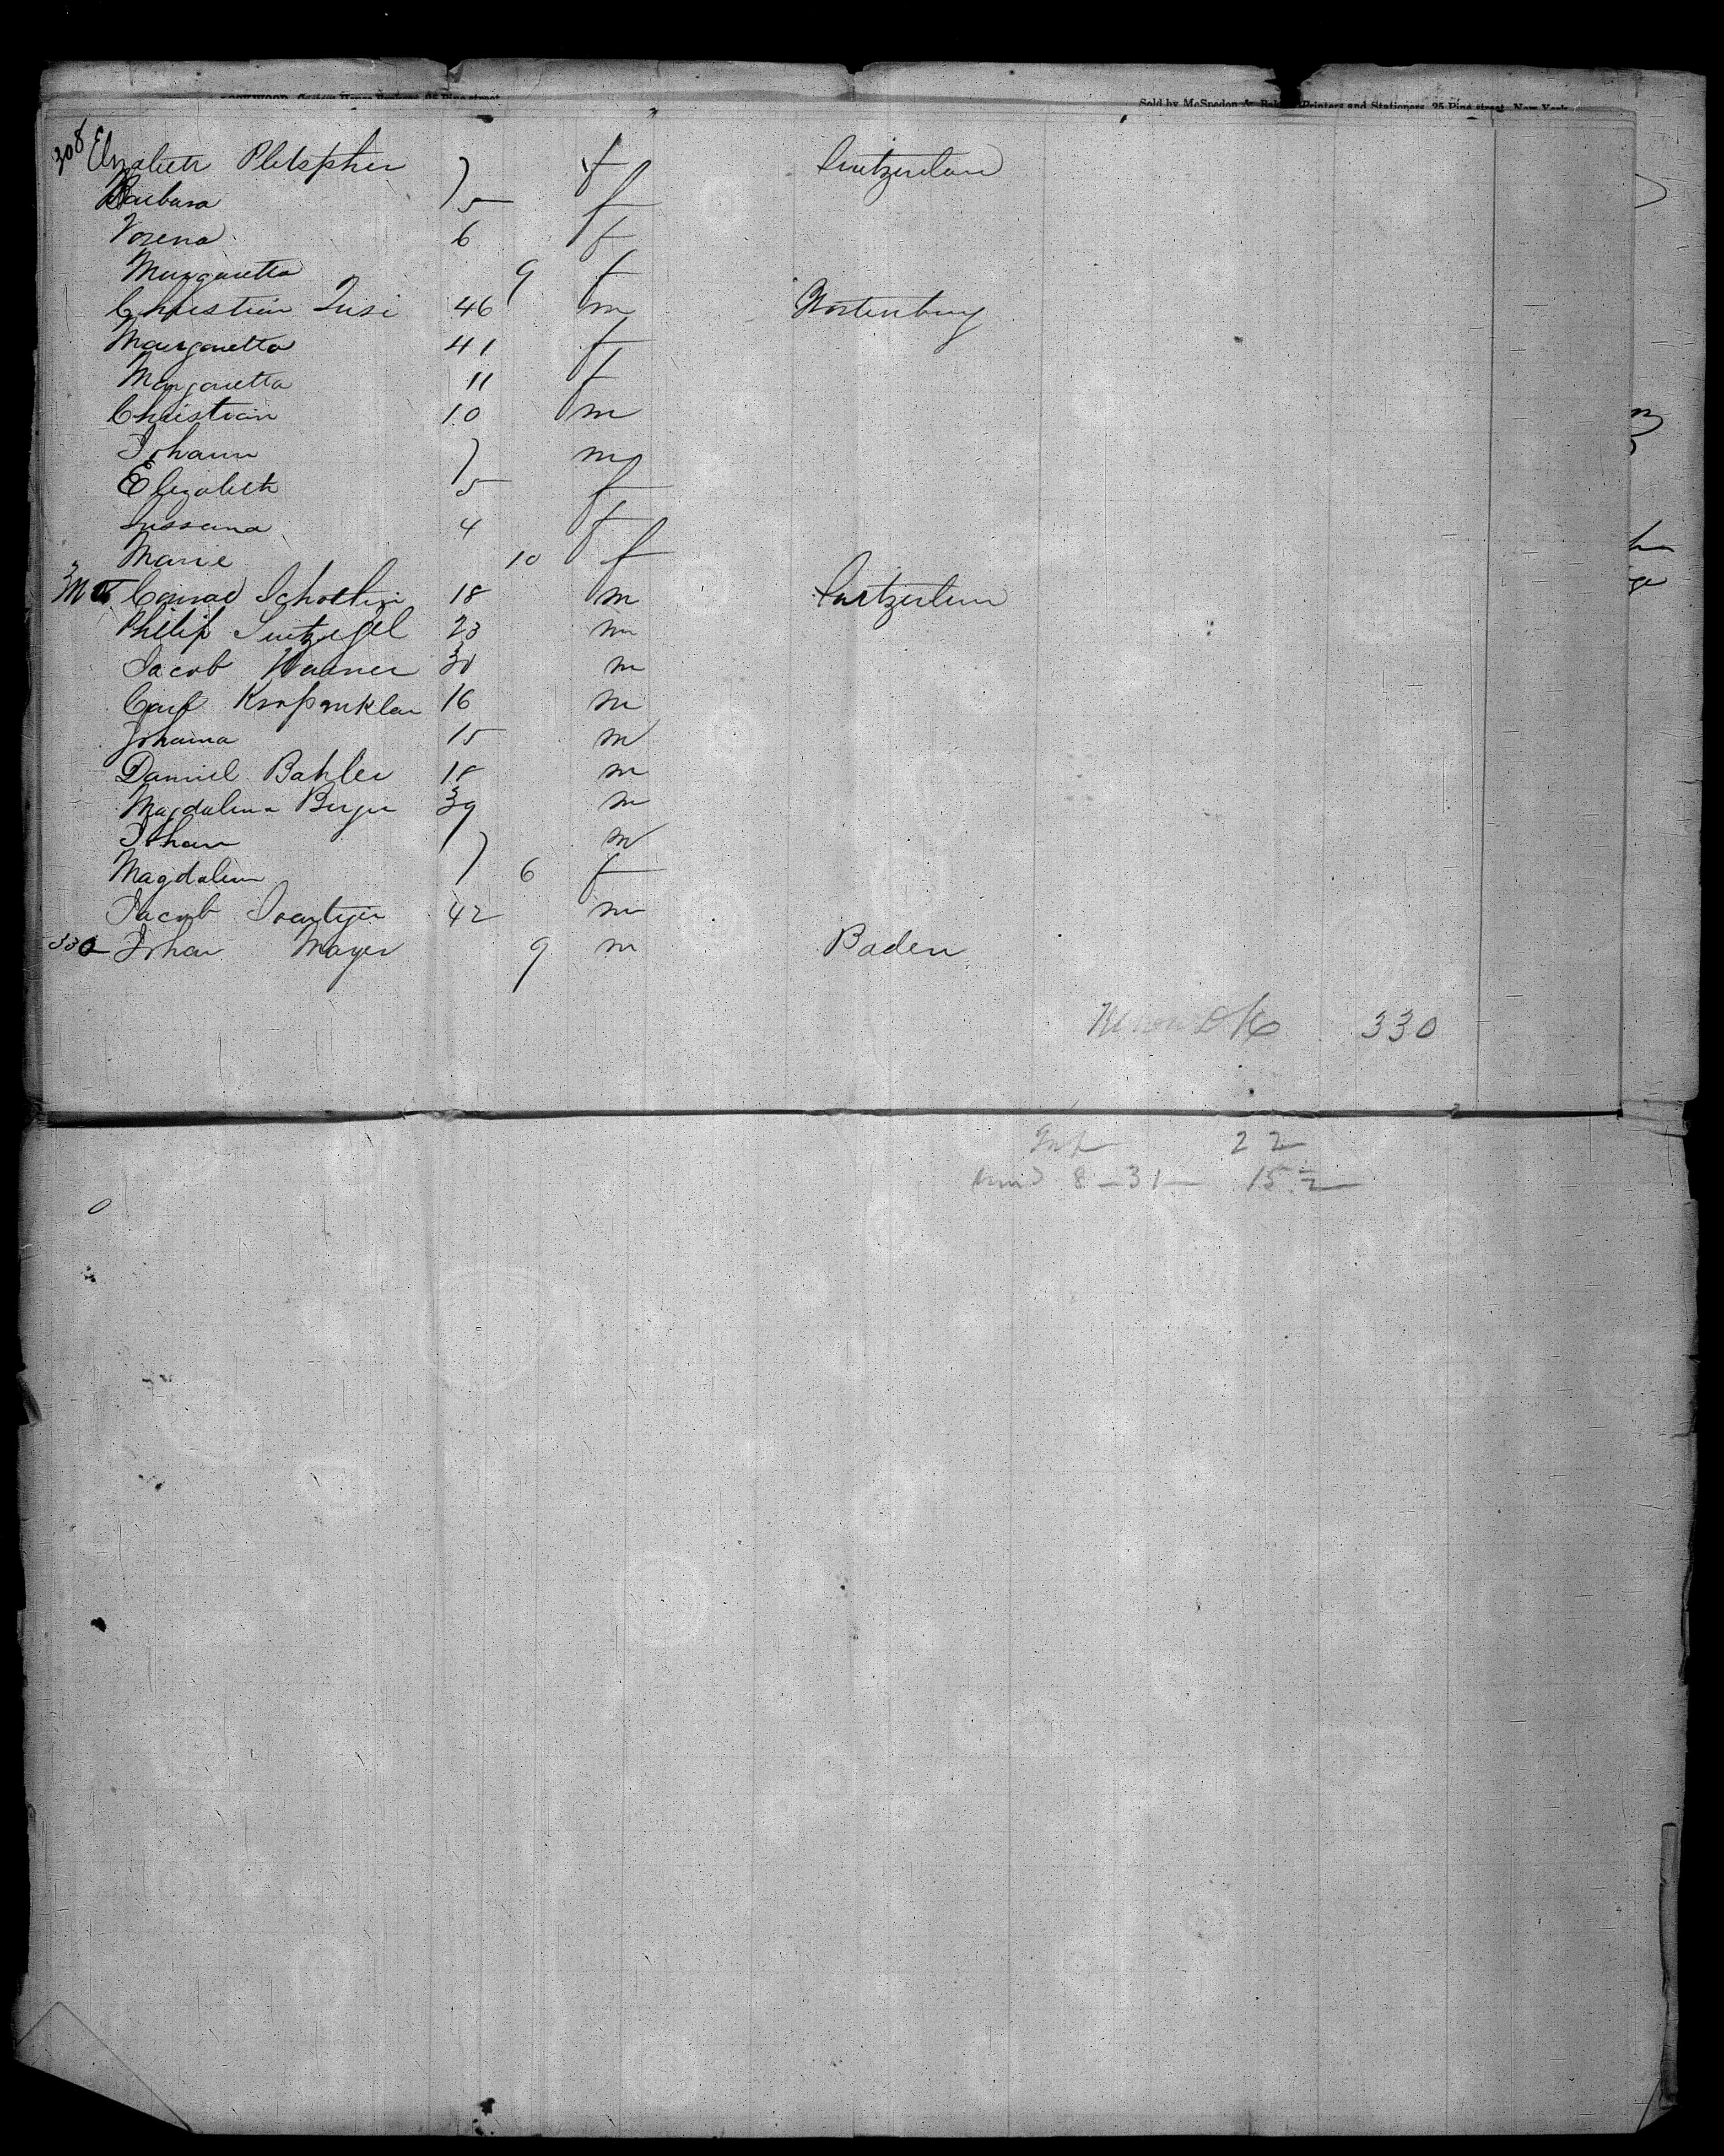 Sold by McSpedon & Baker Printers and Stationers, 25 Pine street, New York
308 Elizabeth Pletspher ) f Switzerlan
Barbara 5 f
Verena 6 f
Margaretta 9 f
Christian Tusi 46 m Wortenburg
Margaretta 41 f
Margaretta 11 f
Christian 10 m
Johann ) m
Elizabeth 5 f
Sussana 4 f
Marie 10 f
Conrad 18 m
Philip 23 m
Jacob Wanner 30 m
Carl 16 m
Johanna 15 m
Daniel Bahler 18 m
Magdalena Berger 39 m
Johan m
Magdalena ) 6 f
Jacob 42 m
330 Johan Mayer 9 m Baden
330
Inf 22
8-31 15½